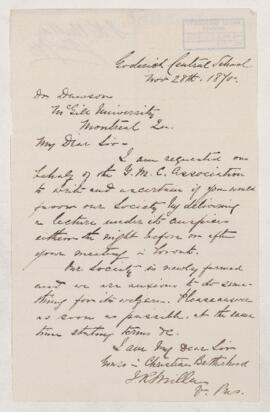 Goderich Central School
Nov 28th. 1870.
Dr Dawson
McGill University
Montreal Qu.
My Dear Sir
I am requested on
behalf of the Y. M. C. Association
to write and ascertain if you would
favor our Society by delivering
a lecture under its auspices
either the night before or after
your meeting in Toronto.
Our Society is newly formed
and we are anxious to do some-
thing for its welfare. Please answer
as soon as possible, at the same
time stating terms &c.
I am My Dear Sir
Yours in Christian Brotherhood
J R Miller
V. Pres.